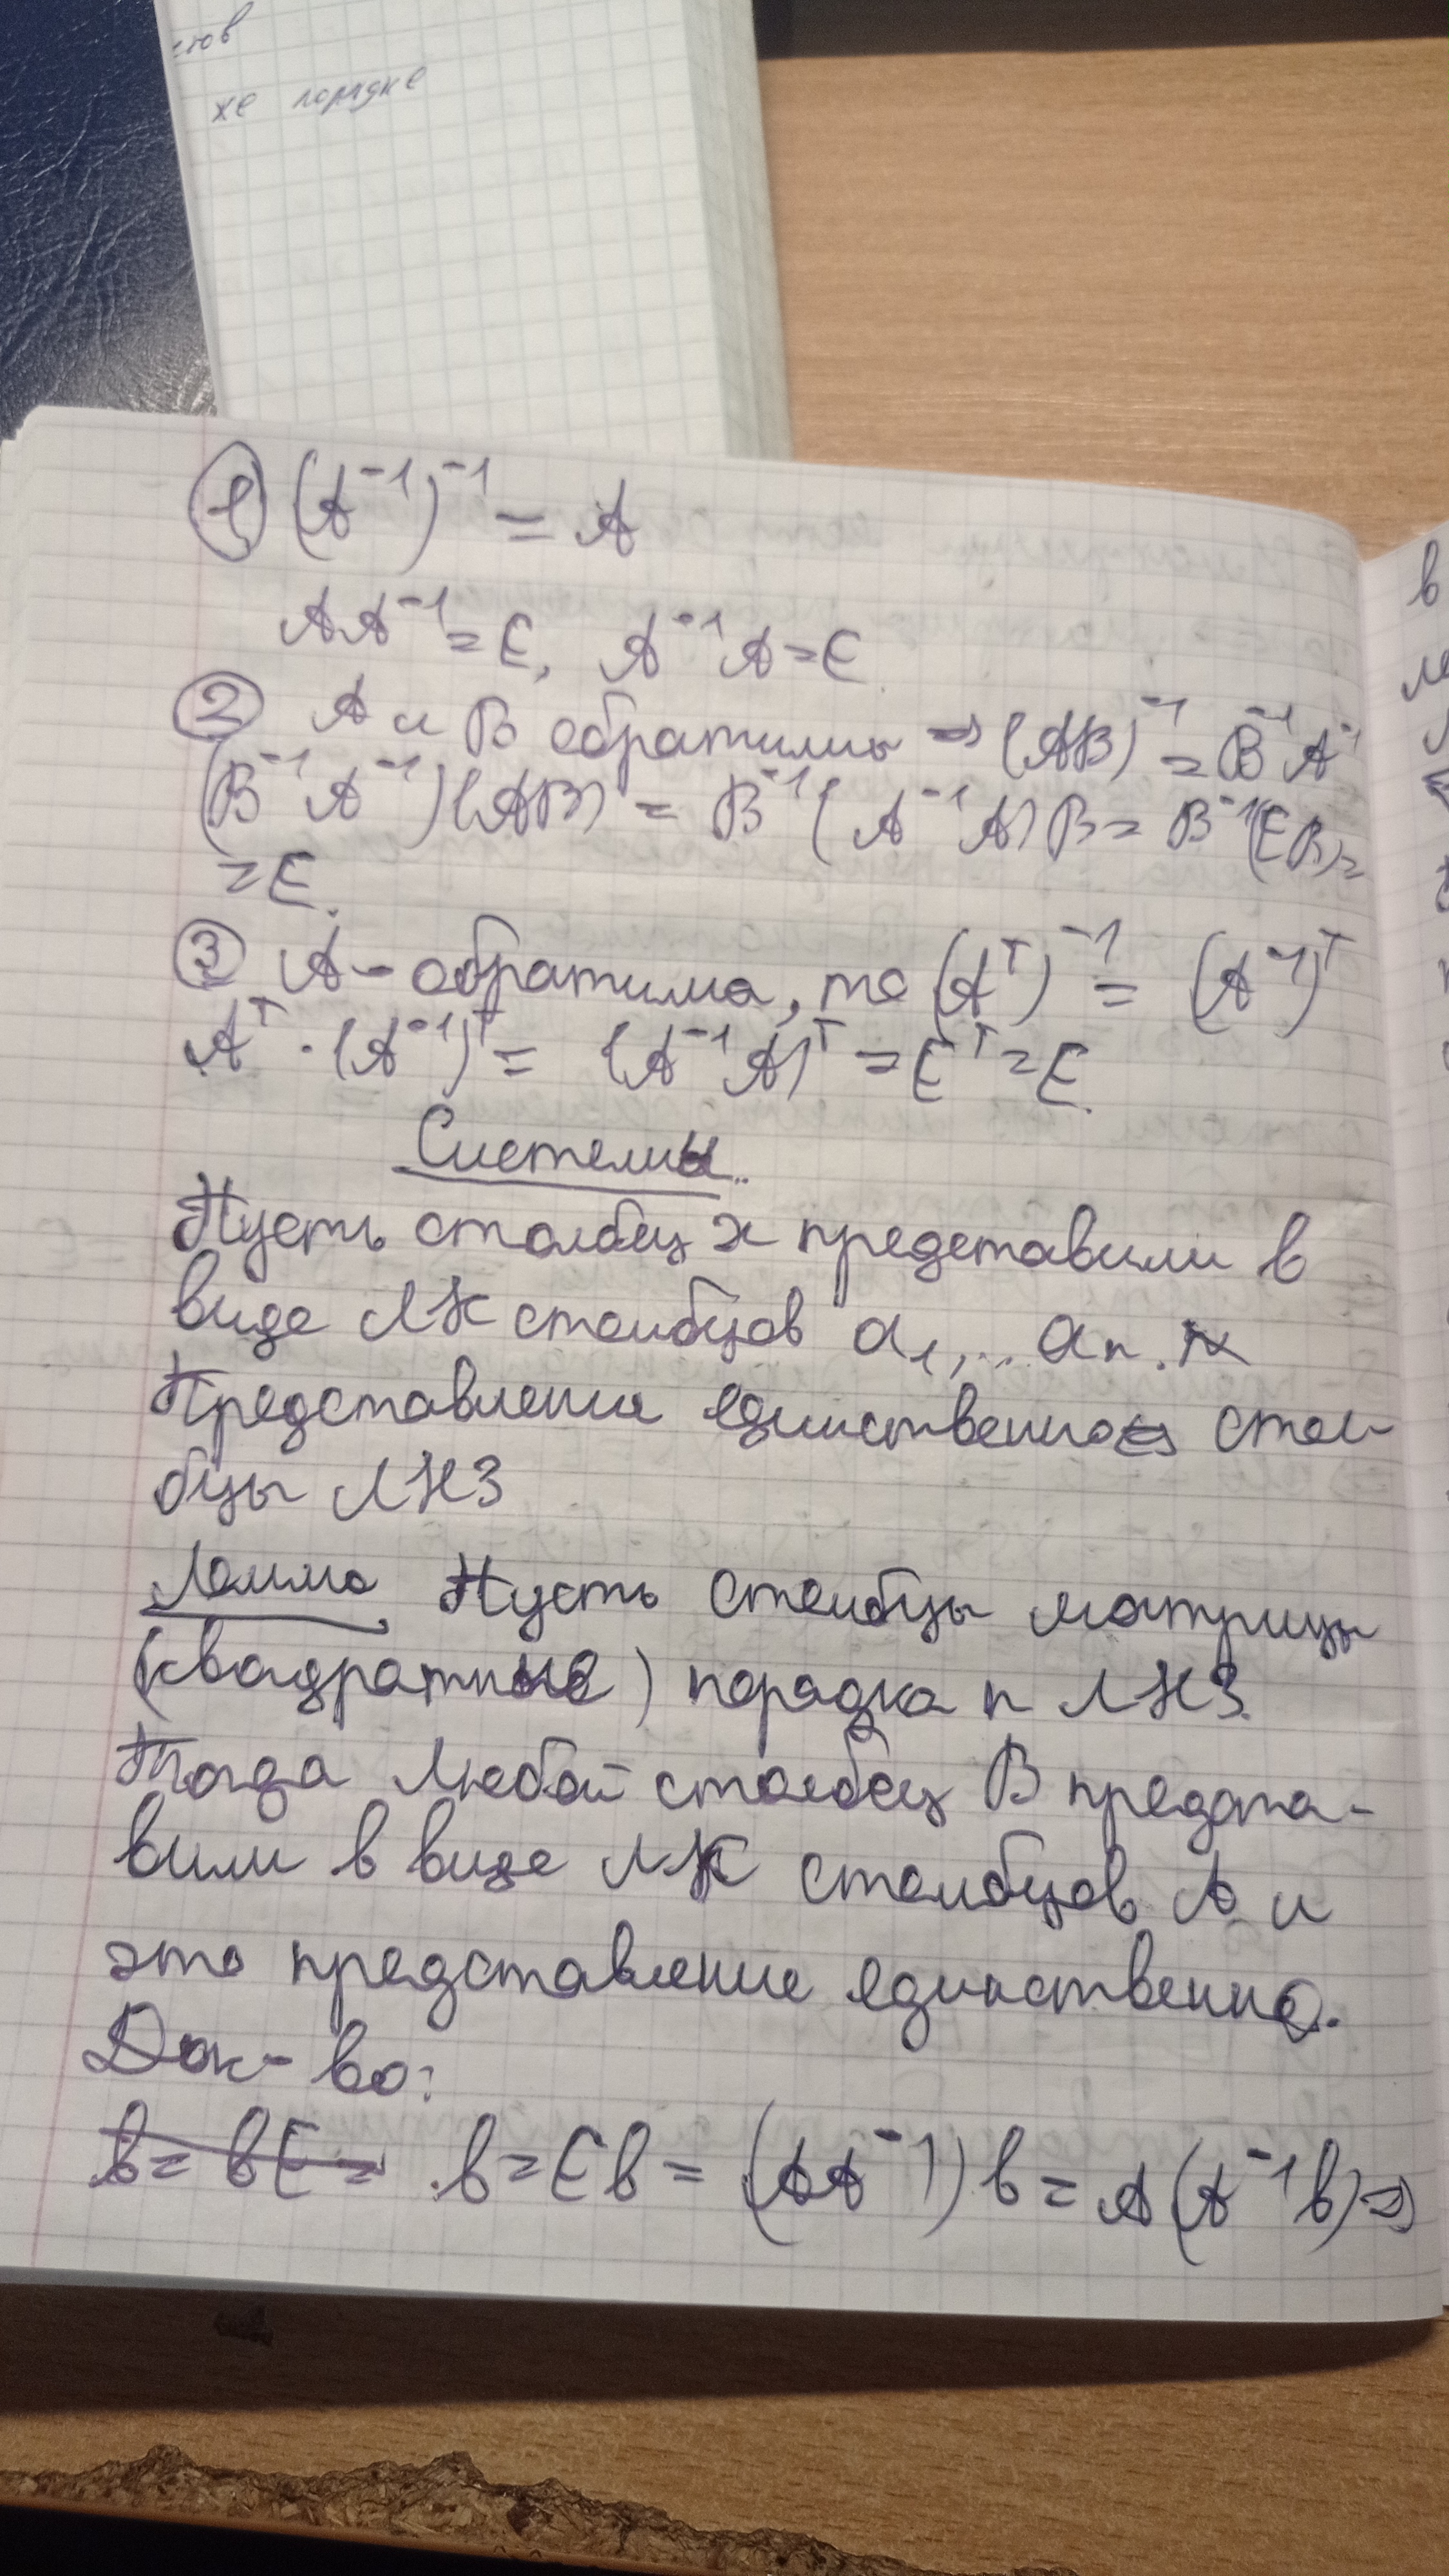 же порядке
① (A⁻¹)⁻¹ = A
AA⁻¹ = E, A⁻¹A = E
② A и B обратимы ⇒ (AB)⁻¹ = B⁻¹A⁻¹
(B⁻¹A⁻¹)(AB) = B⁻¹(A⁻¹A)B = B⁻¹(EB) =
= E.
③ A - обратима, то (Aᵀ)⁻¹ = (A⁻¹)ᵀ
Aᵀ · (A⁻¹)ᵀ = (A⁻¹A)ᵀ = Eᵀ = E.
Системы.
Пусть столбец x представили в
виде ЛК столбцов a₁,... aₙ.
Представление единственно ⇔ стол-
бцы ЛНЗ
Лемма. Пусть столбцы матрицы
(квадратные) порядка n ЛНЗ.
Тогда любой столбец B предста-
вили в виде ЛК столбцов A и
это представление единственно.
Док-во:
b = bE = b = Eb = (AA⁻¹)b = A(A⁻¹b) ⇒